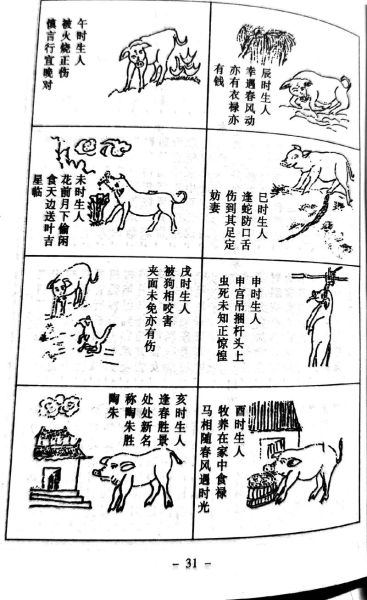 辰时生人
幸遇春风动
亦有衣禄亦
有钱
巳时生人
逢蛇防口舌
伤到其足定
妨妻
午时生人
被火烧正伤
慎言行宜晚
对
未时生人
花前月下偷闲
食天边送叶吉
星临
申时生人
申宫吊捆杆头上
虫死未知正惊惶
酉时生人
牧养在家中食禄
马相随春风遇时光
戌时生人
被狗相咬害
夹面未免亦有伤
亥时生人
逢春胜景
处处新名
称陶朱胜
陶朱
- 31 -